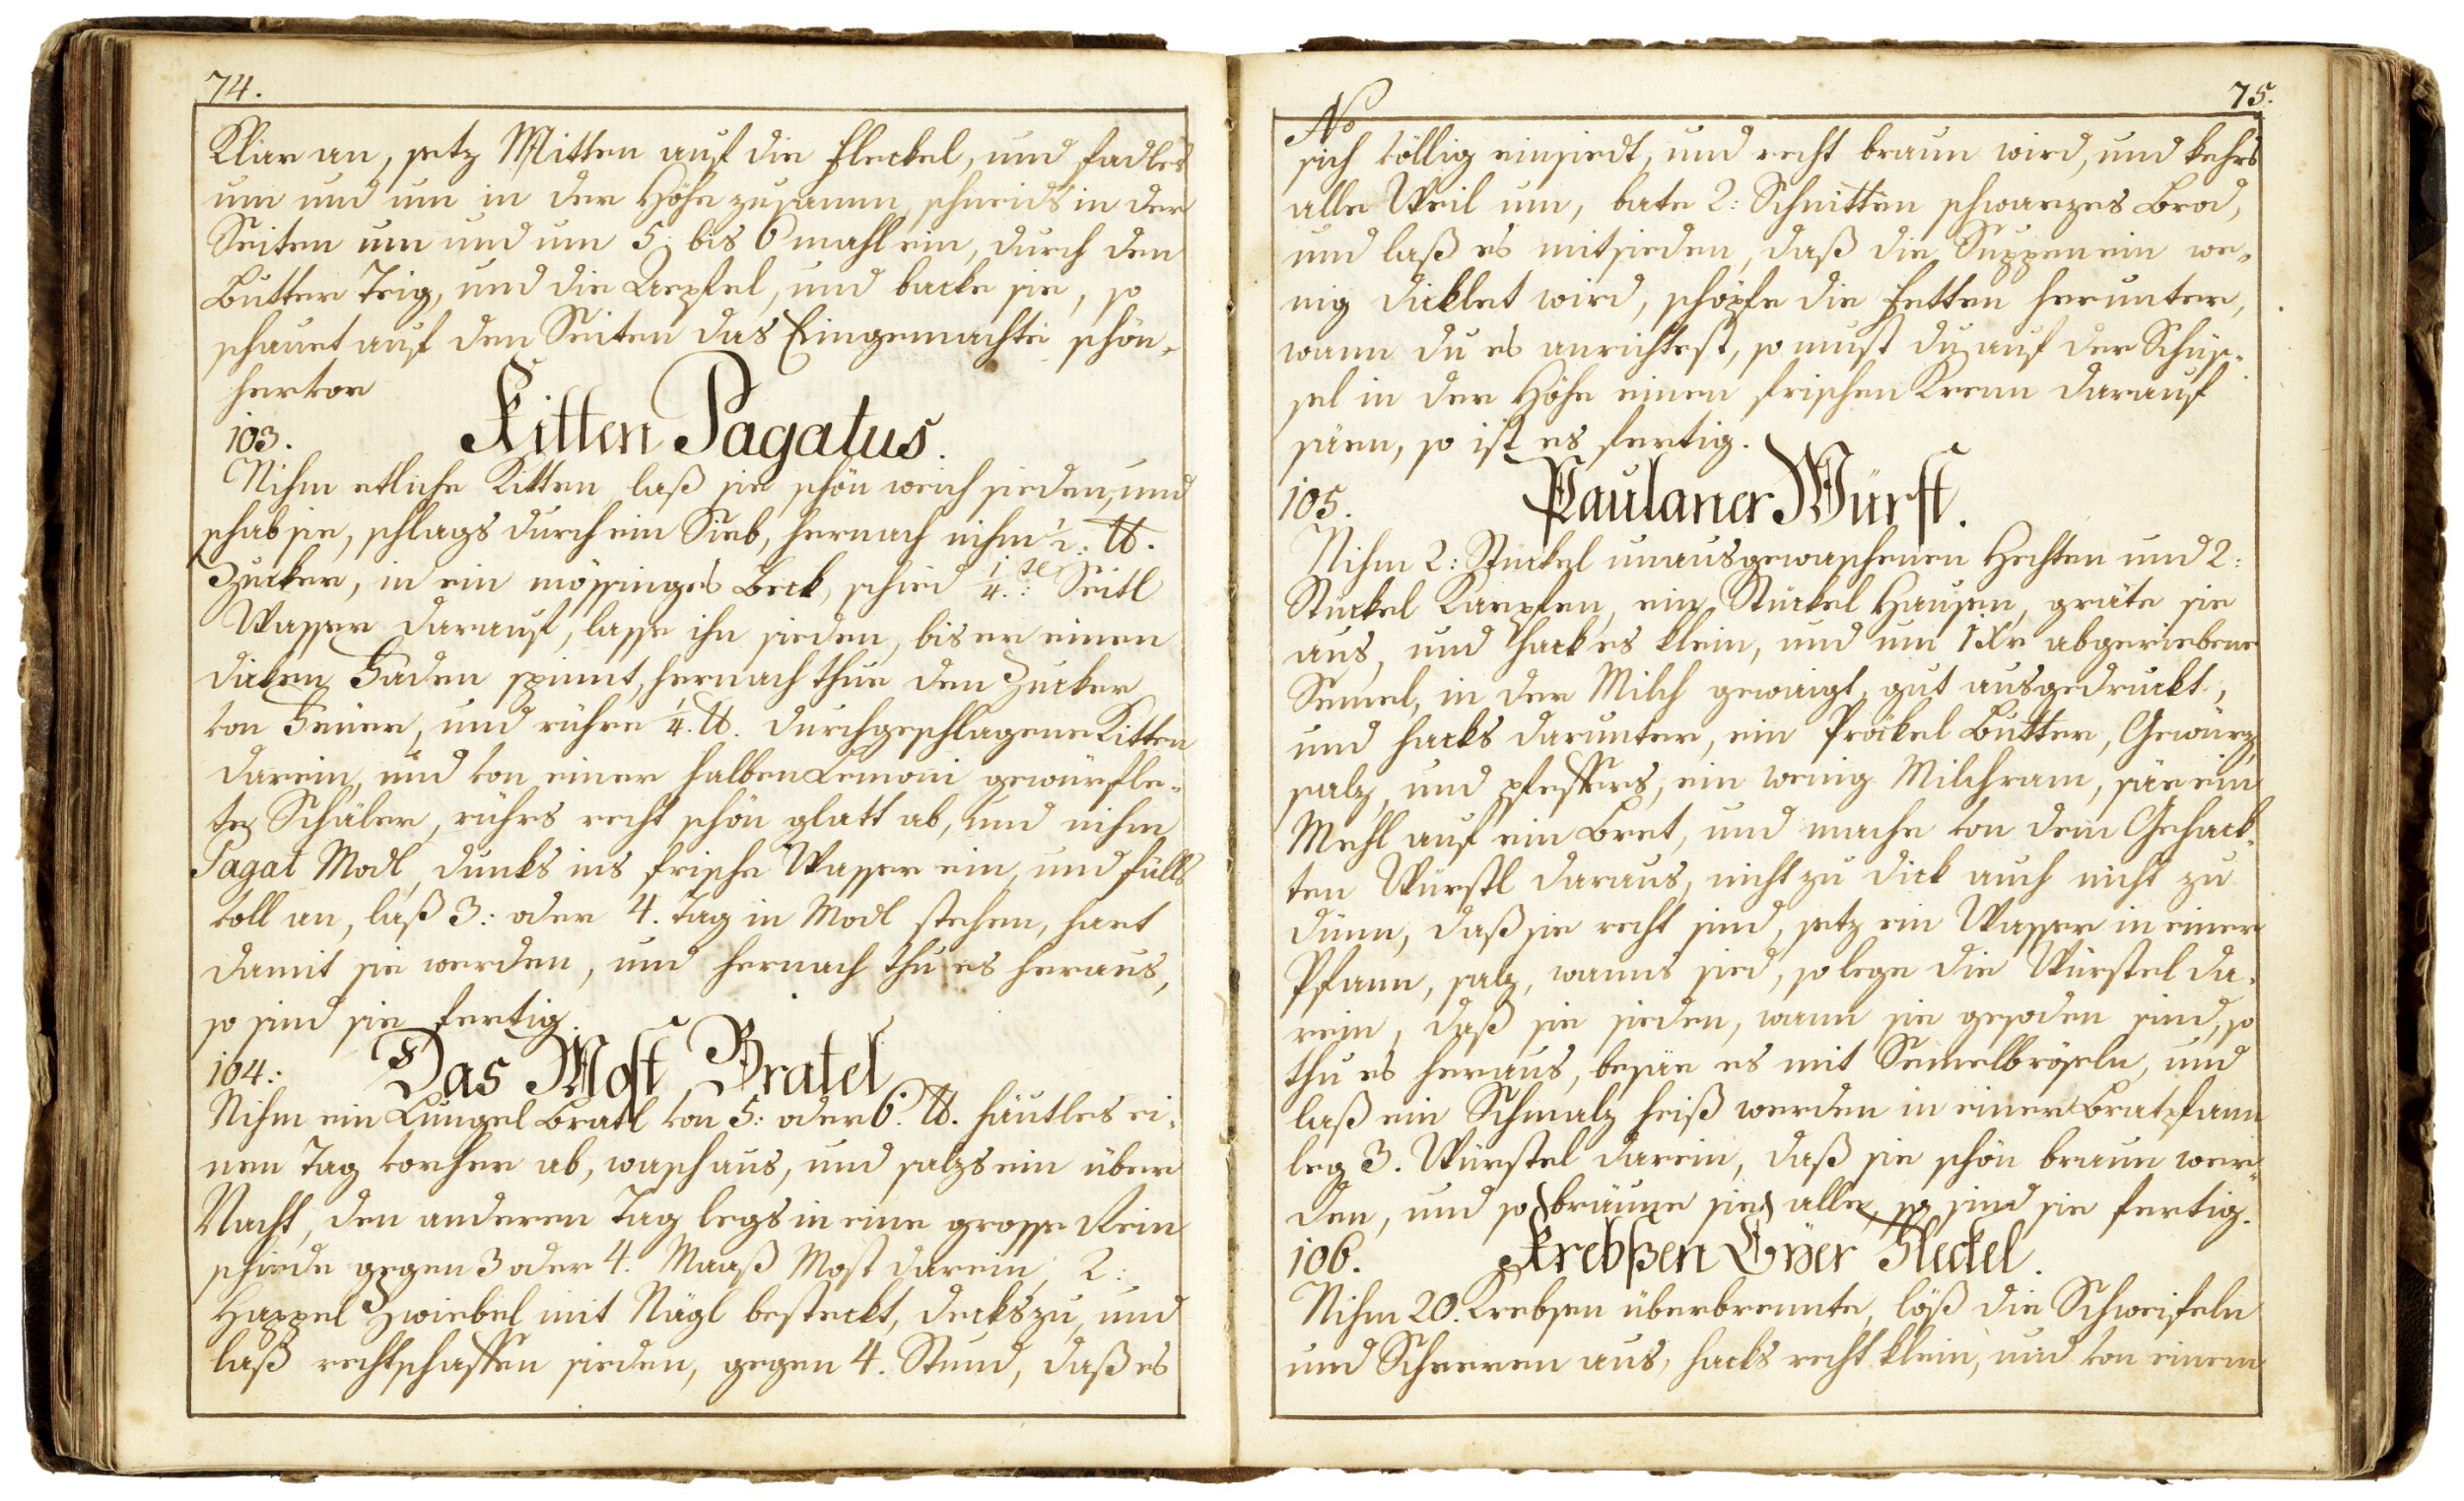 74.
Klar an, setz Mitten auf die Fleckel, und fadles
um und um in der Höhe zusamm, schneids in der
Seiten um und um 5: bis 6 mahl ein, durch den
Butter Teig, und die Aepfel, und backe sie, so
schauet auf den Seiten das Eingemachte schön
hervor
103. Kitten Pagatus.
Nihm etliche Kitten laß sie schön weich sieden, und
schab sie, schlags durch ein Sieb, hernach nihm ½: ℔.
Zucker, in ein mössinges Beck, schied ¼: Seitl
Wasser darauf, lasse ihn sieden, bis er einen
dicken Faden spinnt, hernach thue den Zucker
von Feuer, und rühre ¼. ℔. durchgeschlagene Kitten
darein, und von einer halben Lemoni gewürfle-
te Schäler, rührs recht schön glatt ab, und nihm
Pagat Modl, dunks ins frische Wasser ein, und fülls
voll an, laß 3: oder 4. Tag in Modl stehen, hart
damit sie werden, und hernach thu es heraus,
so sind sie fertig.
104: Das Most Bratel
Nihm ein Lungel Bratl von 5: oder 6: ℔. häutles ei-
nen Tag vorher ab, wasch aus, und salzs ein über
Nacht, den anderen Tag legs in eine grosse Rein
schiede gegen 3 oder 4. Maaß Most darein, 2:
Happel Zwiebel mit Nägl besteckt, decks zu, und
laß rechtschaffen sieden, gegen 4. Stund, daß es
No 75.
sich völlig einsiedt, und recht braun wird, und kehrs
alle Weil um, bate 2: Schnitten schwarzes Brod,
und laß es mitsieden, daß die Suppen ein we-
nig dicklet wird, schöpfe die Fetten herunter,
wann du es anrichtest, so must du auf der Schüs-
sel in der Höhe einen frischen Krenn darauf
säen, so ist es fertig.
105. Paulaner Würst.
Nihm 2: Stückel unausgewaschenen Hechten und 2:
Stückel Karpfen, ein Stückel Hausen, gräte sie
aus, und hack es klein, und um 1 Xr abgeriebene
Semel, in der Milch geweigt, gut ausgedruckt,
und hacks darunter, ein Pröckel Butter, Gewürz,
salz, und pfeffers, ein wenig Milchram, säe ein
Mehl auf ein Bret, und mache von dem Gehack-
ten Würstl daraus, nicht zu dick auch nicht zu
dünn, daß sie recht sind, setz ein Wasser in einer
Pfann, salz, wanns sied, so lege die Würstel da-
rein, daß sie sieden, wann sie gesoden sind, so
thu es heraus, besäe es mit Semelbröseln, und
laß ein Schmalz heiß werden in einer Bratpfann
leg 3. Würstel darein, daß sie schön braun wer-
den, und so bräune sie alle, so sind sie fertig.
106. Krebßen Eyer Fleckel.
Nihm 20. Krebsen überbrennte, löß die Schweifeln
und Scheeren aus, hacks recht klein, und von einem